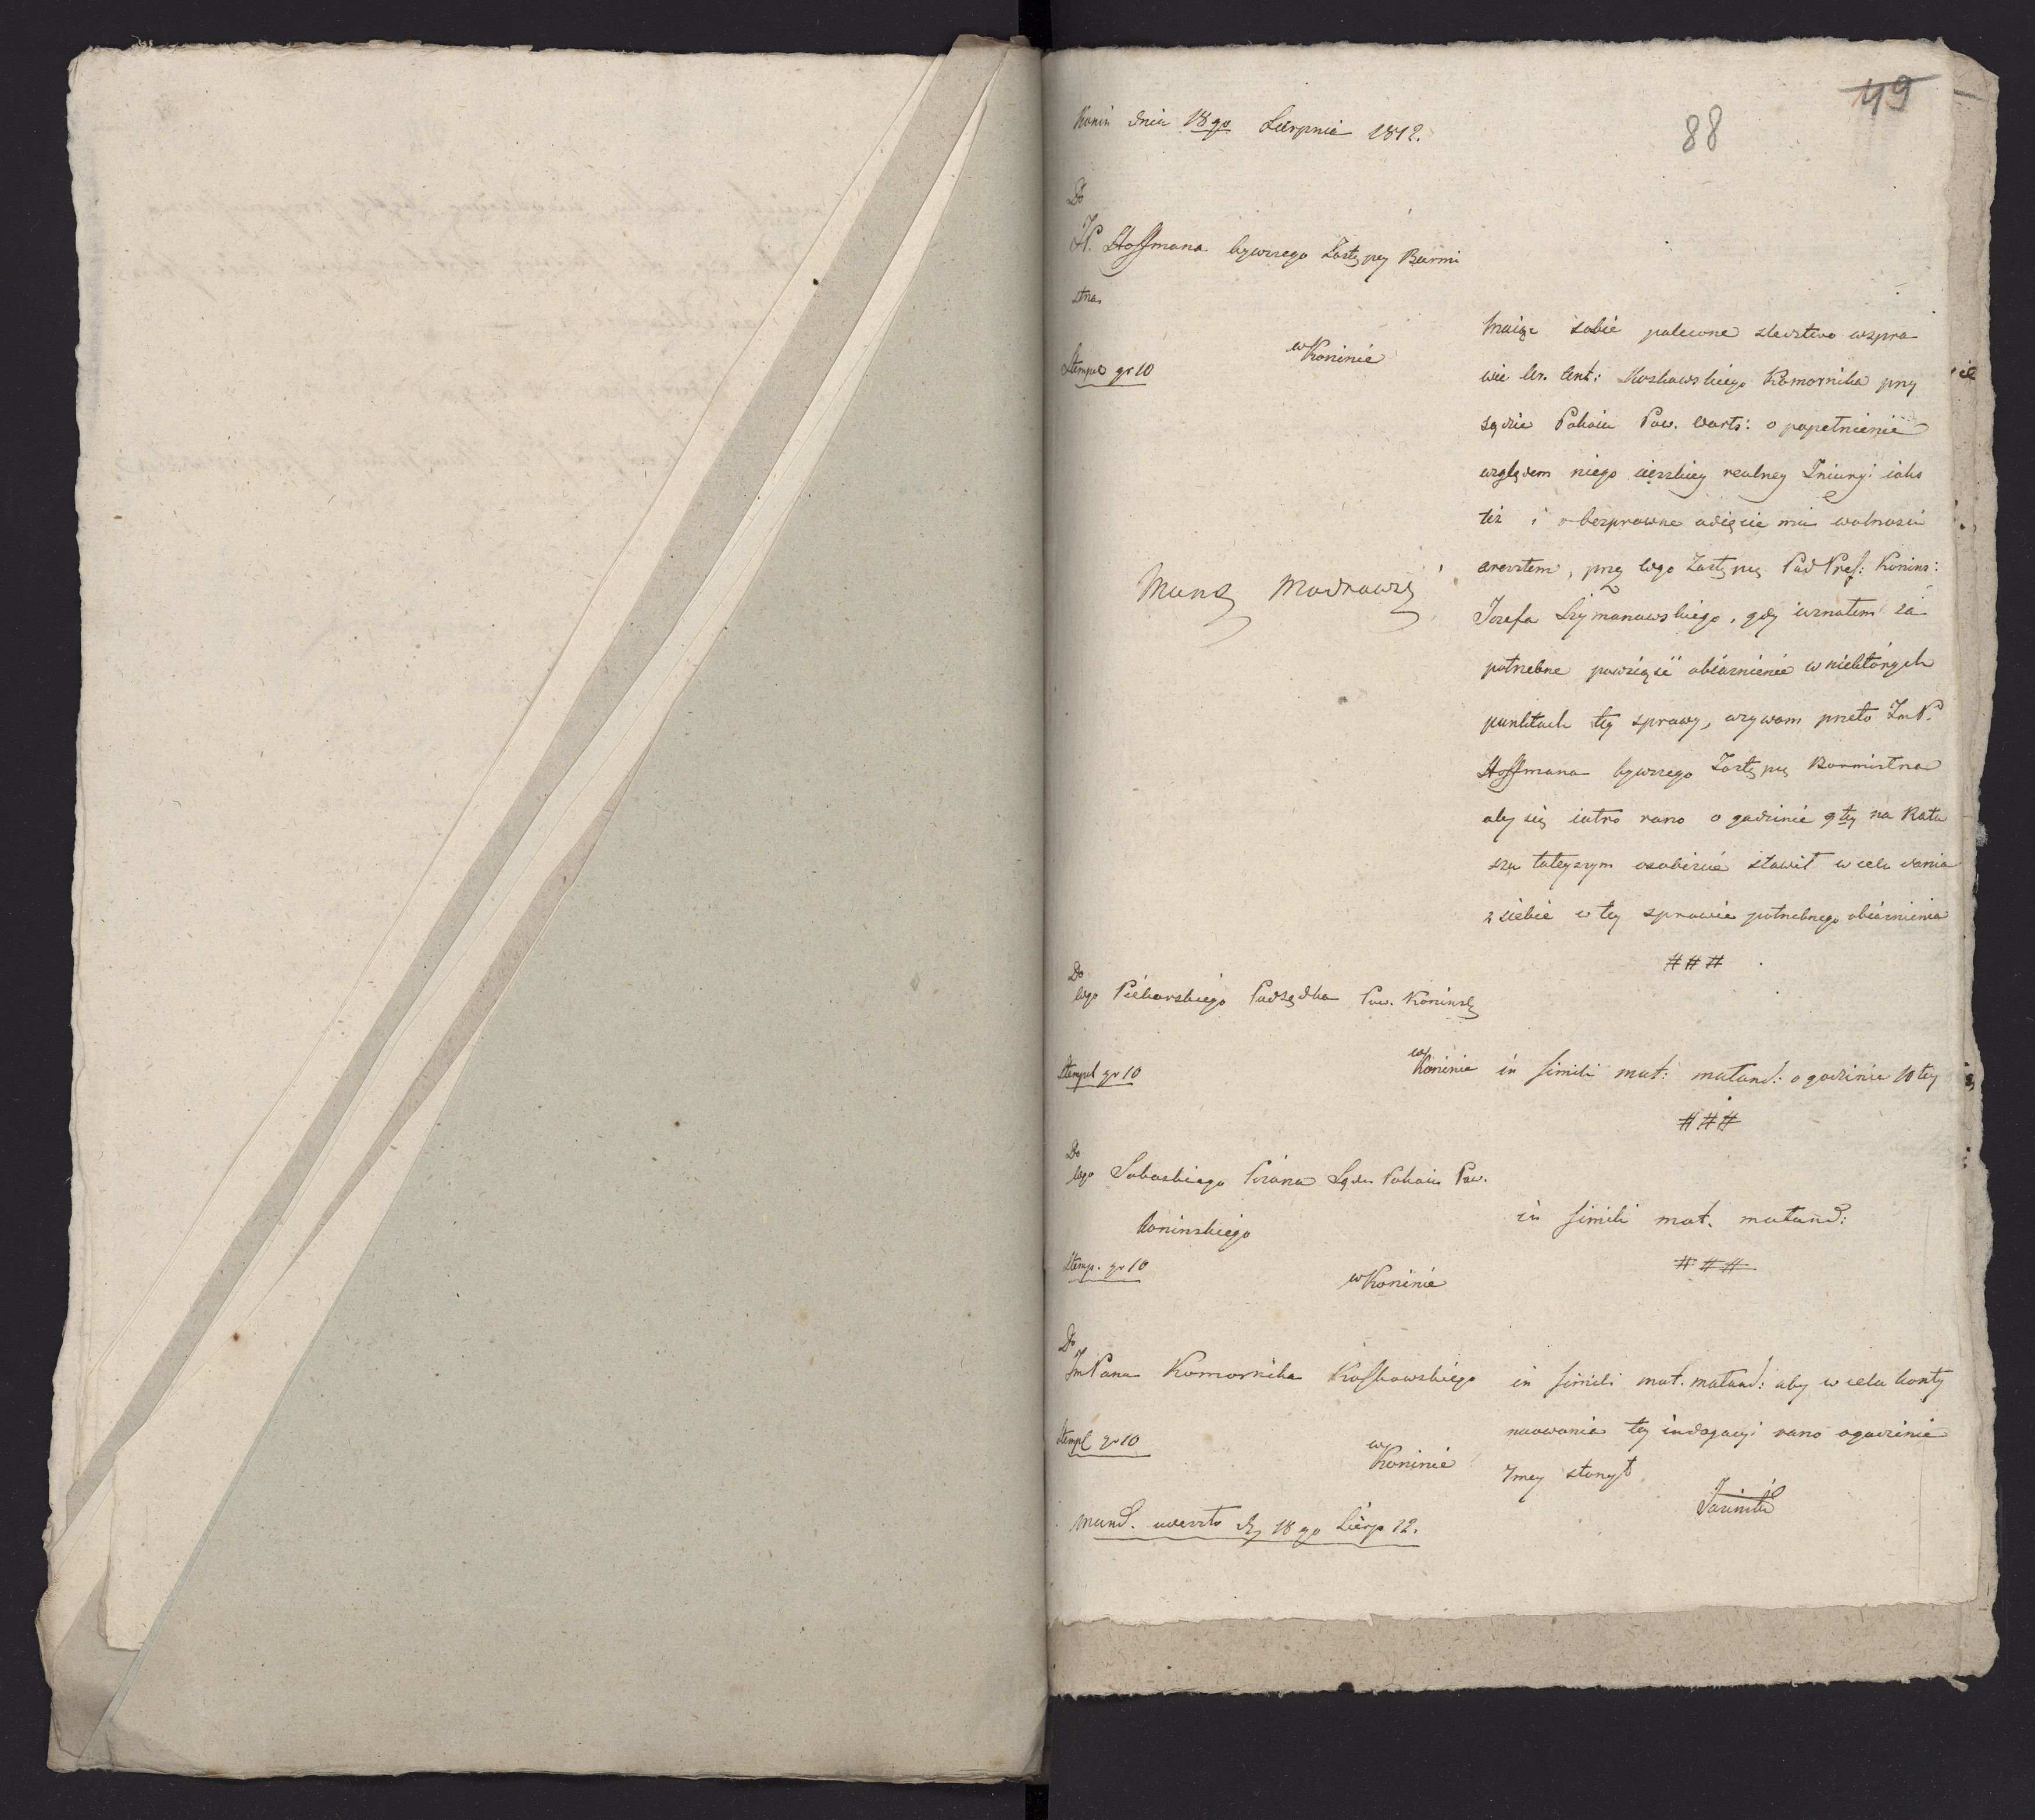 49
88
Konin dnia 18go Sierpnia 1812.
Do
JP. Hoffmana bywszego Zastępcy Burmi
strza
w Koninie
Stempel gr 10
Maiąc sobie polecone sledztwo wspra
wie Ur. Ant: Koskowskiego Komornika przy
sądzie Pokoiu Pow. Warts: o popełnienie
względem niego cięszkiey realney Iniuryi iako
też i o bezprawne odięcie mu wolności
aresztem, przez Wgo Zastępcę PodPref: Konins:
Jozefa Szymanowskiego, gdy uznałem za
potrzebne powziąść obiasnienie w niektórych
punktach tey sprawy, wzywam przeto JmP.
Hoffmana bywszego Zastępcę Burmistrza
aby się iutro rano o godzinie 9tey na Ratu
szu tuteyszym osobiscie stawił w celu dania
z siebie w tey sprawie potrzebnego obiasnienia
###
Do
Wgo Piekarskiego Podsędka Pow. Koninsk
w Koninie
Stempel gr 10
in simili mut: mutand: o godzinie 10tey
###
Do
Wgo Sobockiego Pisarza Sądu Pokoiu Pow.
Koninskiego
Stemp. gr 10
w Koninie
in simili mut. mutand:
###
Do
JmPana Komornika Koskowskiego
Stempl gr 10
w Koninie
in simili mut. mutand: aby w celu konty
nuowania tey indagacyi rano o godzinie
7mey stanął
mund. uweszto d 18go Sierp 12.